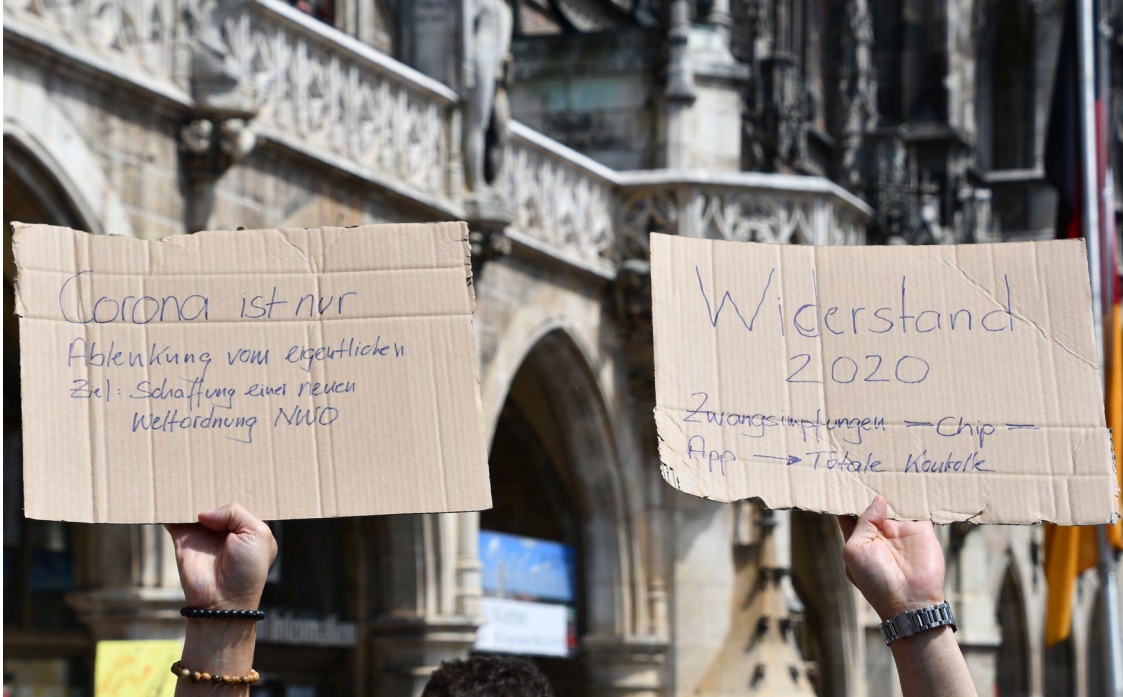 Corona ist nur
Ablenkung vom eigentlichen
Ziel: Schaffung einer neuen
Weltordnung NWO
Widerstand
2020
Zwangsimpfungen — Chip —
App → Totale Kontrolle
Information